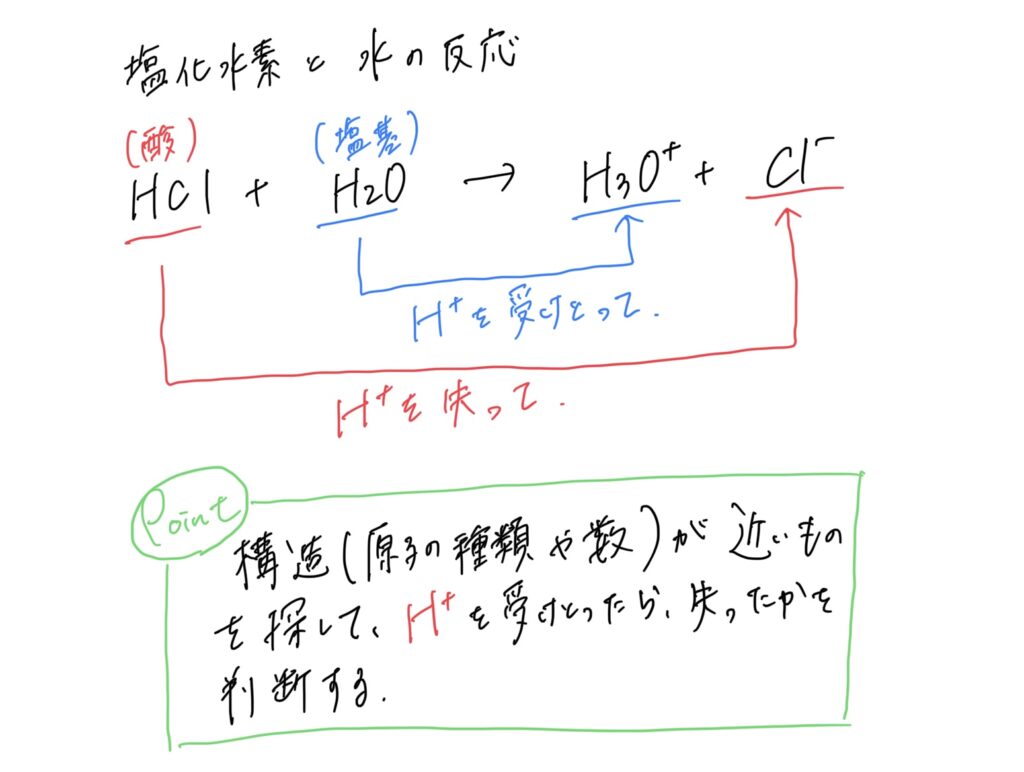 塩化水素と水の反応
(酸) (塩基)
HCl + H2O → H3O⁺ + Cl⁻
H⁺を受けとって.
H⁺を失って.
Point
構造(原子の種類や数)が近いもの
を探して、H⁺を受けとったら、失ったかを
判断する.